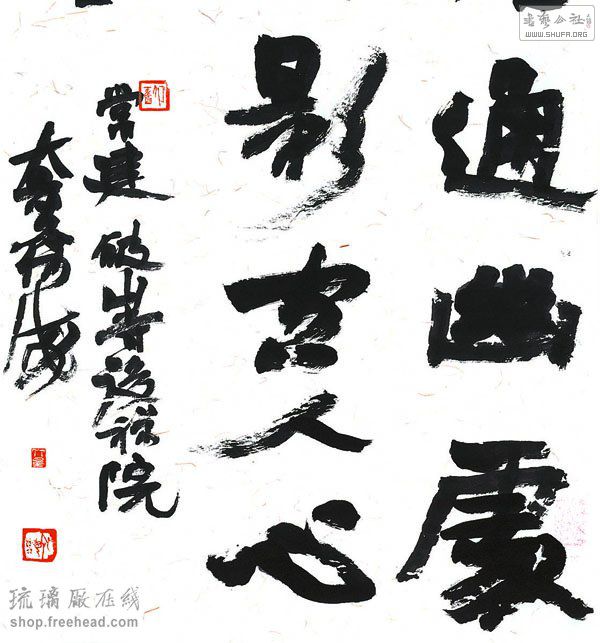 通幽處
影空人心
常建破山寺後禪院
书艺公社
WWW.SHUFA.ORG
琉璃厰在线
shop.freehead.com